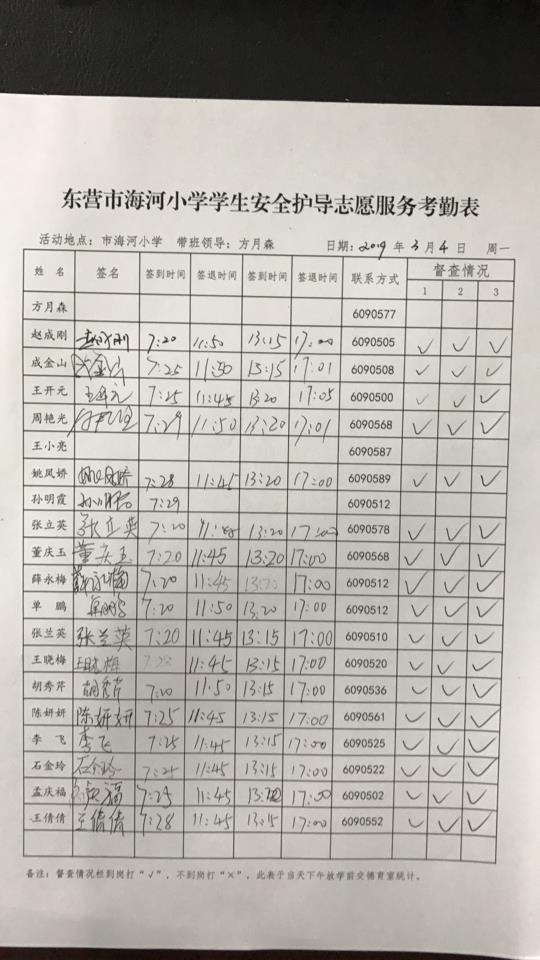 东营市海河小学学生安全护导志愿服务考勤表
活动地点：市海河小学 带班领导：方月森 日期：2019 年 3 月 4 日 周一
姓 名 签名 签到时间 签退时间 签到时间 签退时间 联系方式 督查情况
1 2 3
方月森 6090577
赵成刚 赵成刚 7:20 11:50 13:15 17:00 6090505 ✓ ✓ ✓
成金山 成金山 7:25 11:50 13:15 17:01 6090508 ✓ ✓ ✓
王开元 王开元 7:25 11:45 13:20 17:05 6090500 ✓ ✓ ✓
周艳光 7:29 11:50 13:20 17:01 6090568 ✓ ✓ ✓
王小亮 6090587
姚凤娇 姚凤娇 7:28 11:45 13:20 17:00 6090589 ✓ ✓ ✓
孙明霞 7:29 6090512
张立英 张立英 7:20 13:20 17:00 6090578 ✓ ✓ ✓
董庆玉 董庆玉 7:20 11:45 13:20 17:00 6090568 ✓ ✓ ✓
薛永梅 薛永梅 7:20 11:45 13:20 17:00 6090512 ✓ ✓ ✓
单 鹏 单鹏 7:20 11:50 13:20 17:00 6090512 ✓ ✓ ✓
张兰英 张兰英 7:20 11:45 13:15 17:00 6090510 ✓ ✓ ✓
王晓梅 王晓梅 11:45 13:15 17:00 6090520 ✓ ✓ ✓
胡秀芹 胡秀芹 7:20 11:50 13:15 17:00 6090536 ✓ ✓ ✓
陈妍妍 陈妍妍 7:25 11:45 13:15 17:00 6090561 ✓ ✓ ✓
李 飞 李飞 7:25 11:45 13:15 17:00 6090525 ✓ ✓ ✓
石金玲 石金玲 7:25 11:45 13:15 17:00 6090522 ✓ ✓ ✓
孟庆福 7:25 11:45 17:00 6090502 ✓ ✓ ✓
王倩倩 王倩倩 7:28 11:45 13:15 17:00 6090552 ✓ ✓ ✓
备注：督查情况栏到岗打“√”，不到岗打“×”，此表于当天下午放学前交德育室统计。